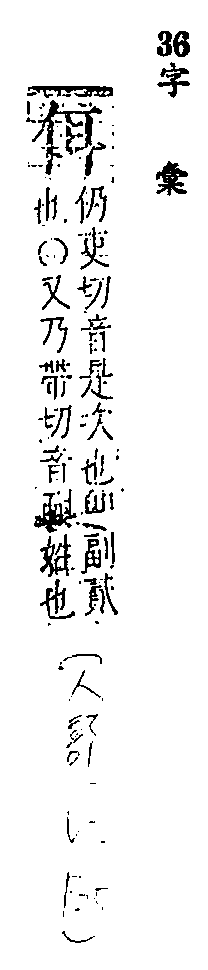 36
字彙
佴
仍吏切音是次也 副貳
也〇又乃帶切音 姓也